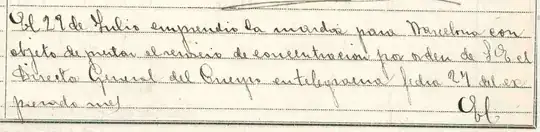 El 29 de Julio emprendio la marcha para Barcelona con
objeto de prestar el servicio de concentracion por orden de S. E. el
Director General del Cuerpo en telegrama fecha 27 del ex
presado mes